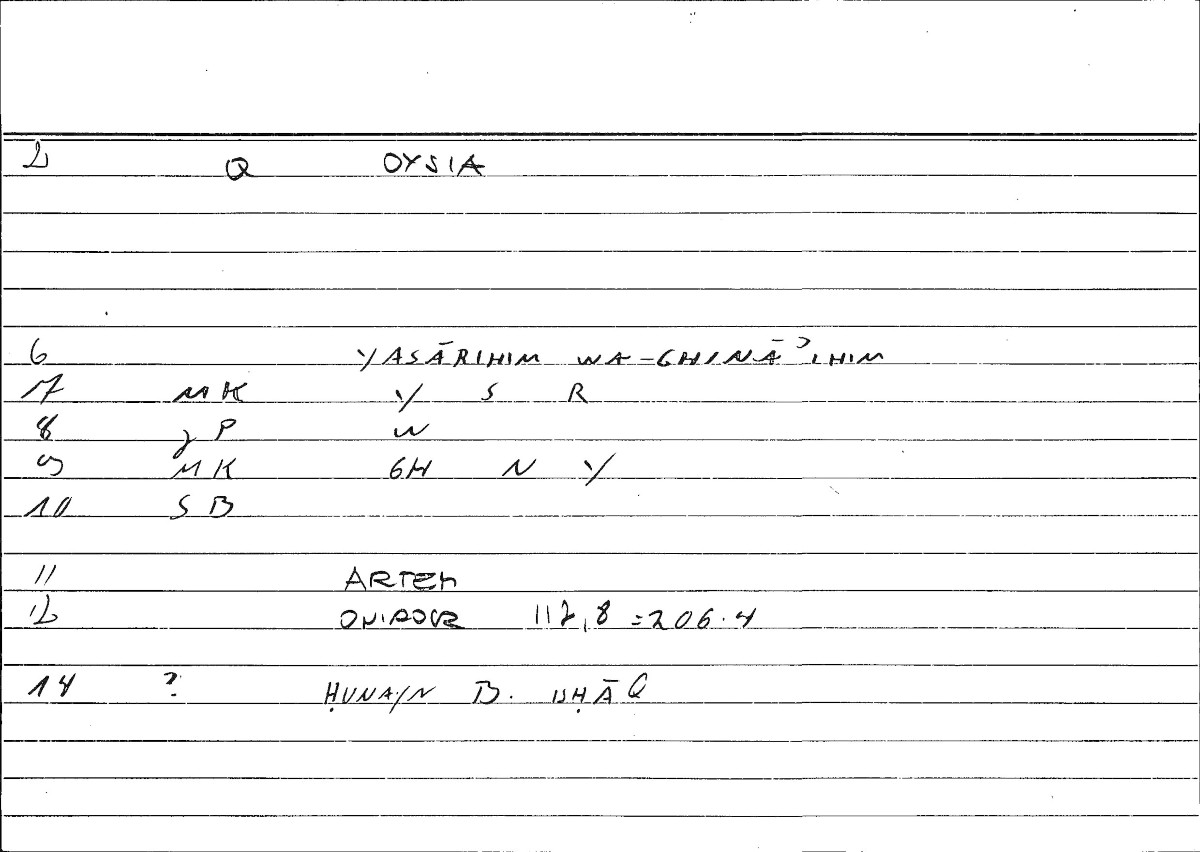 2 Q OYSIA
6 YASĀRIHIM WA-GHINĀʾIHIM
7 MK Y S R
8 P W
9 MK GH N Y
10 SB
11 ARTEM
12 ONIROCR 112,8 = 206.4
14 ? ḤUNAYN B. ISḤĀQ